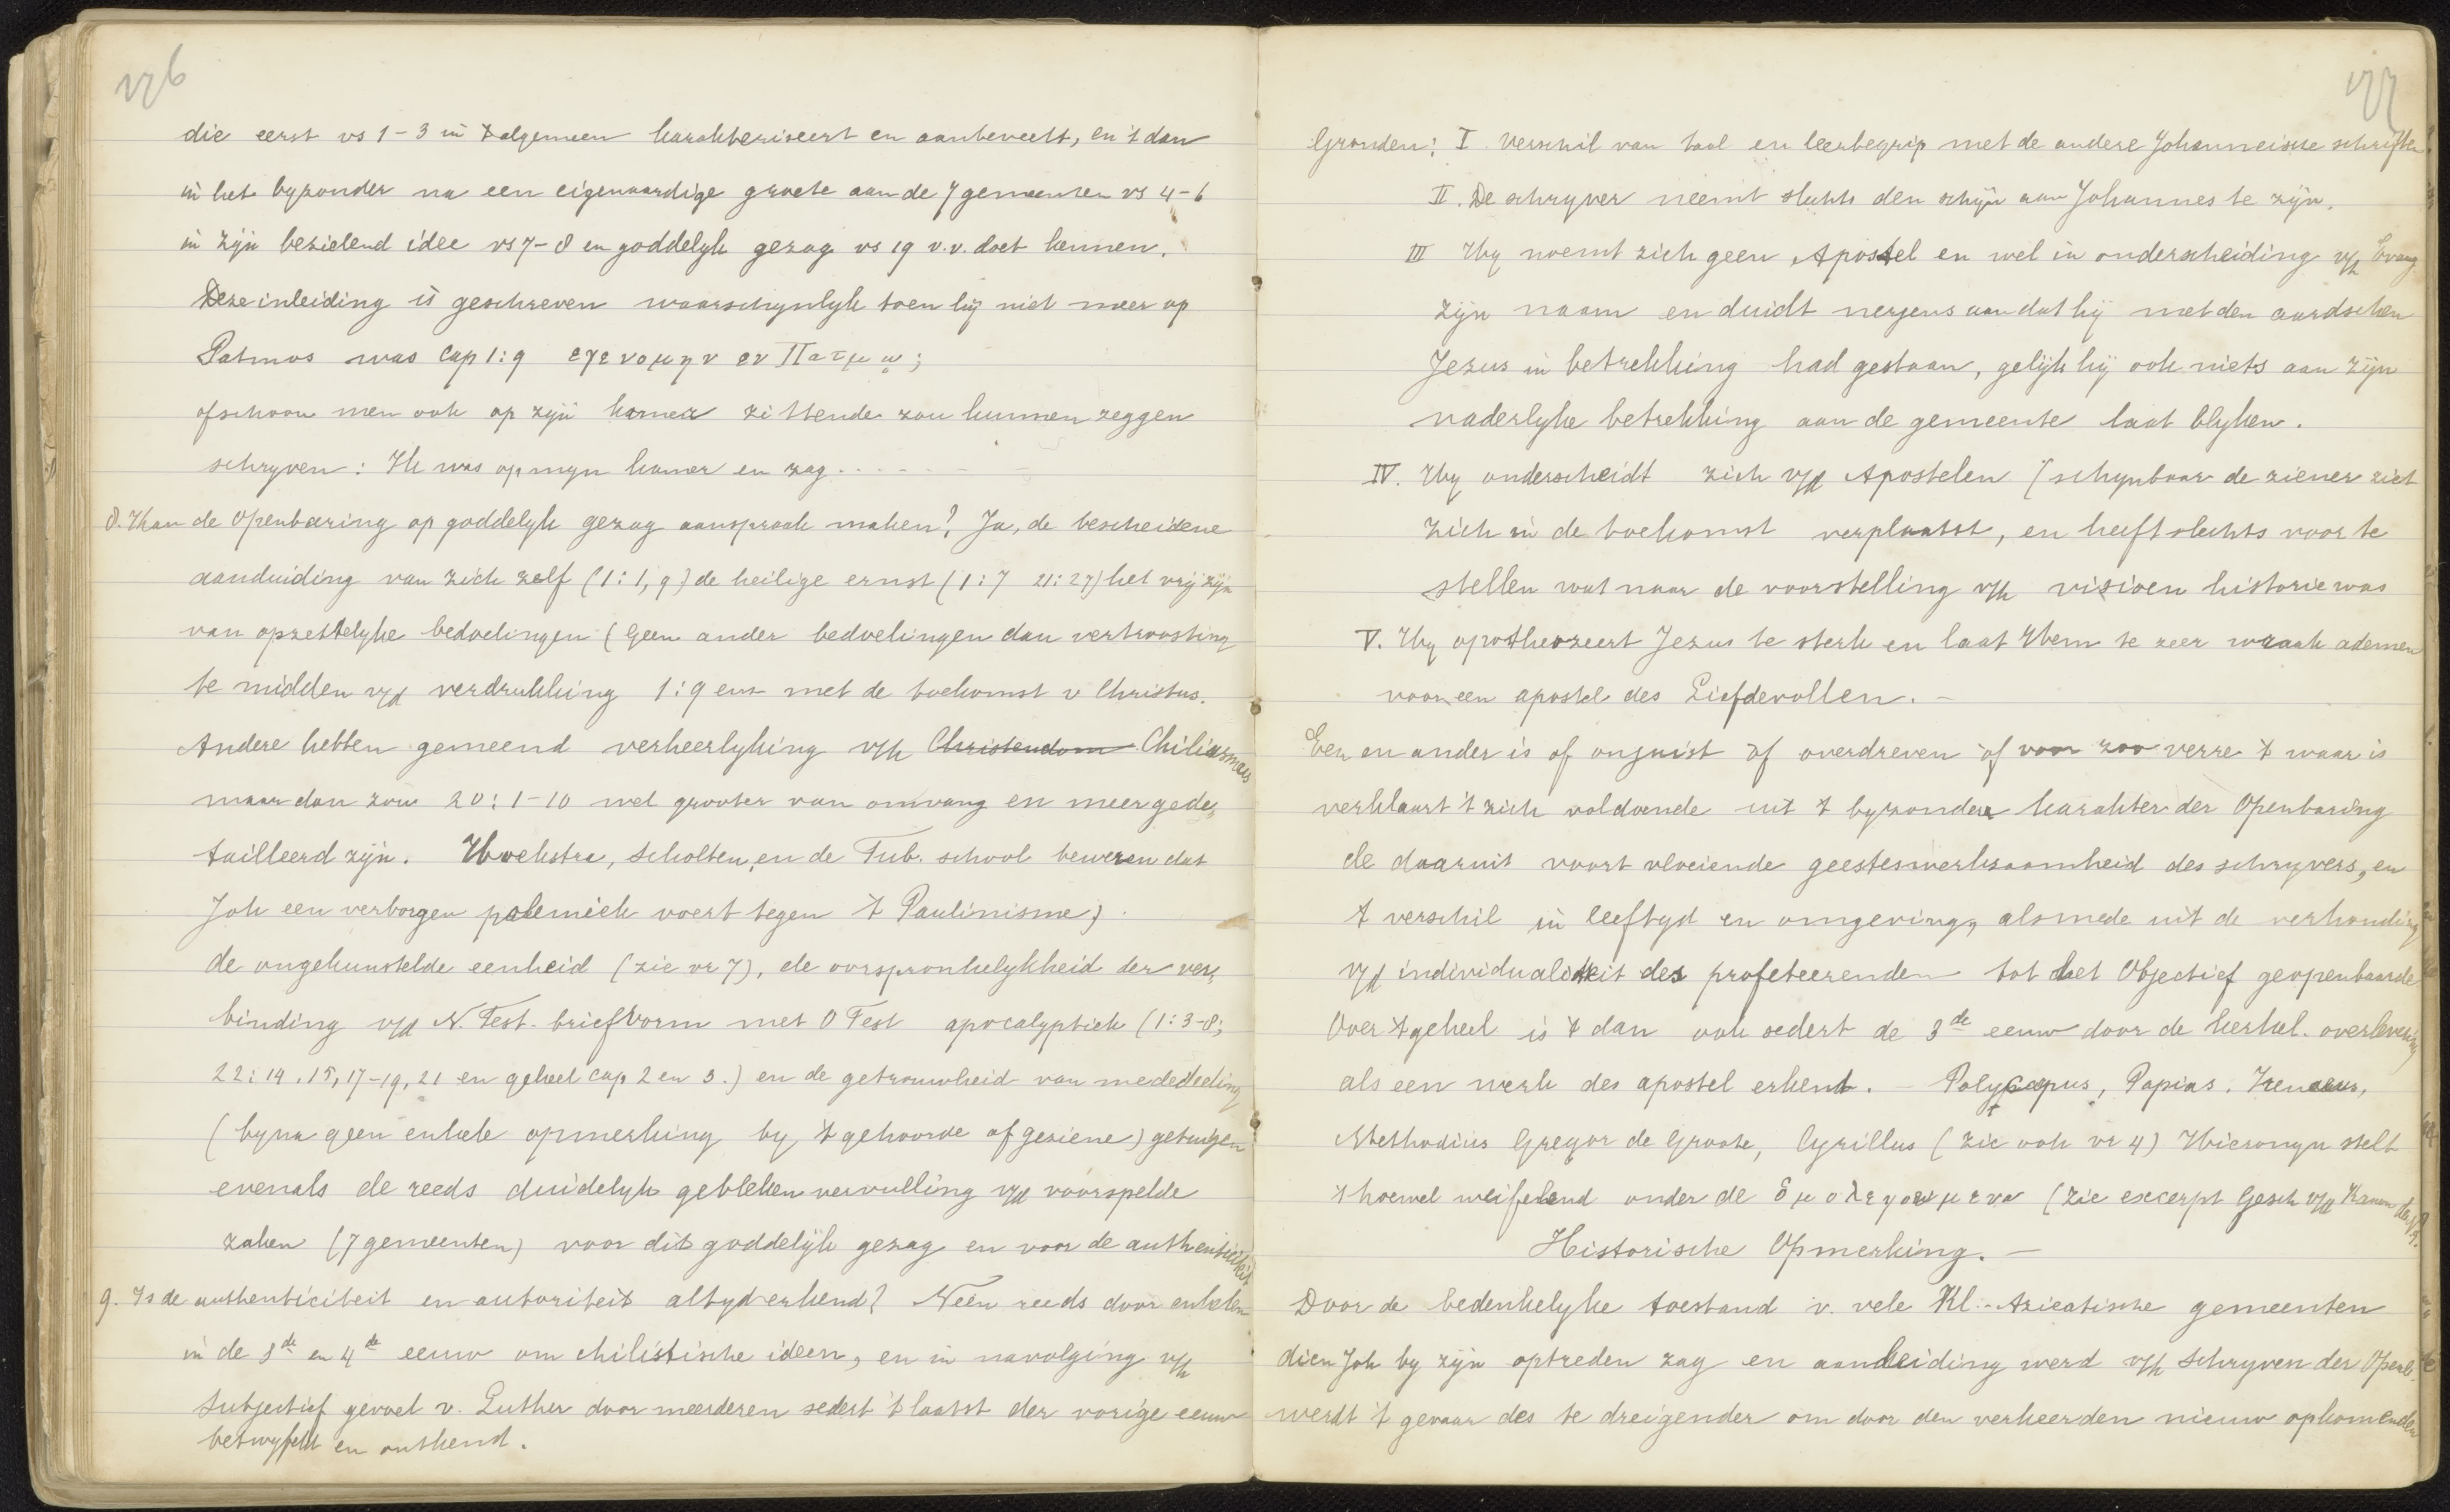 176
die eerst vs 1-3 in 't algemeen karakteriseert en aanbeveelt, en 't dan
in het byzonder na een eigenaardige groete aan de 7 gemeenten vs 4-6
in zijn bezielend idee vs 7-8 en goddelyk gezag vs 19 v.v. doet kennen.
Deze inleiding is geschreven waarschynlyk toen hij niet meer op
Patmos was Cap 1:9 εγενομην εν Πατμῳ;
ofschoon men ook op zijn kamer zittende zou kunnen zeggen
schryven: Ik was op myn kamer en zag......
8. Kan de Openbaring op goddelyk gezag aanspraak maken? Ja, de bescheidene
aanduiding van zich zelf (1:1, 9) de heilige ernst (1:7 21:27) het vrij zijn
van opzettelyke bedoelingen (Geen ander bedoelingen dan vertroosting
te midden v/d verdrukking 1:9 enz met de toekomst v Christus.
Andere hebben gemeend verheerlyking v/h Christendom Chiliasmus
maar dan zou 20:1-10 wel grooter van omvang en meer gede-
tailleerd zijn. Hoekstra, Scholten, en de Tub. school beweren dat
Joh een verborgen polemiek voert tegen 't Paulinisme)
de ongekunstelde eenheid (zie vr 7), de oorspronkelykheid der ver-
binding v/d N. Test. briefvorm met O Test apocalyptiek (1:3-8;
22:14.15, 17-19, 21 en geheel cap 2 en 3.) en de getrouwheid van mededeeling
(byna geen enkele opmerking by 't gehoorde of geziene) getuigen
evenals de reeds duidelyk gebleken vervulling v/d voorspelde
zaken (7 gemeenten) voor dit goddelijk gezag en voor de authenticiteit.
9. Is de authenticiteit en autoriteit altyd erkend? Neen reeds door enkelen
in de 3de en 4de eeuw om chilistische ideen, en in navolging v/h
subjectief gevoel v. Luther door meerderen sedert 't laatst der vorige eeuw
betwyfeld en ontkend.
177
Gronden: I verschil van taal en leerbegrip met de andere Johanneische schriften.
II. De schryver neemt slechts den schijn aan Johannes te zijn.
III Hy noemt zich geen Apostel en wel in onderscheiding v/h Evang
zijn naam en duidt nergens aan dat hij met den aardschen
Jezus in betrekking had gestaan, gelijk hij ook niets aan zijn
vaderlyke betrekking aan de gemeente laat blyken.
IV. Hy onderscheidt zich v/d Apostelen (schynbaar de ziener ziet
zich in de toekomst verplaatst, en heeft slechts voor te
stellen wat naar de voorstelling v/h visioen historie was
V. Hy apotheozeert Jezus te sterk en laat Hem te zeer wraak ademen
voor een apostel des Liefdevollen. -
Een en ander is of onjuist of overdreven of voor zoo verre 't waar is
verklaart 't zich voldoende uit 't byzonder karakter der Openbaring
de daaruit voort vloeiende geesteswerkzaamheid des schryvers, en
't verschil in leeftyd en omgeving, alsmede uit de verhouding
v/d individualiteit des profeteerenden tot het Objectief geopenbaarde
Over 't geheel is 't dan ook sedert de 3de eeuw door de kerkel. overlevering
als een werk des apostel erkent. - Polycarpus, Papias. Irenaeus,
Methodius Gregor de Groote, Cyrillus (zie ook vr 4) Hieronym stelt
't hoewel weifelend onder de ὁμολεγουμενα (zie excerpt Gesch v/d Kanon
Historische Opmerking. -
Door de bedenkelyke toestand v. vele Kl.-Aziatische gemeenten
dien Joh by zijn optreden zag en aanleiding werd v/h schryven der Openb.
werdt 't gevaar des te dreigender om door den verkeerden nieuw opkomenden